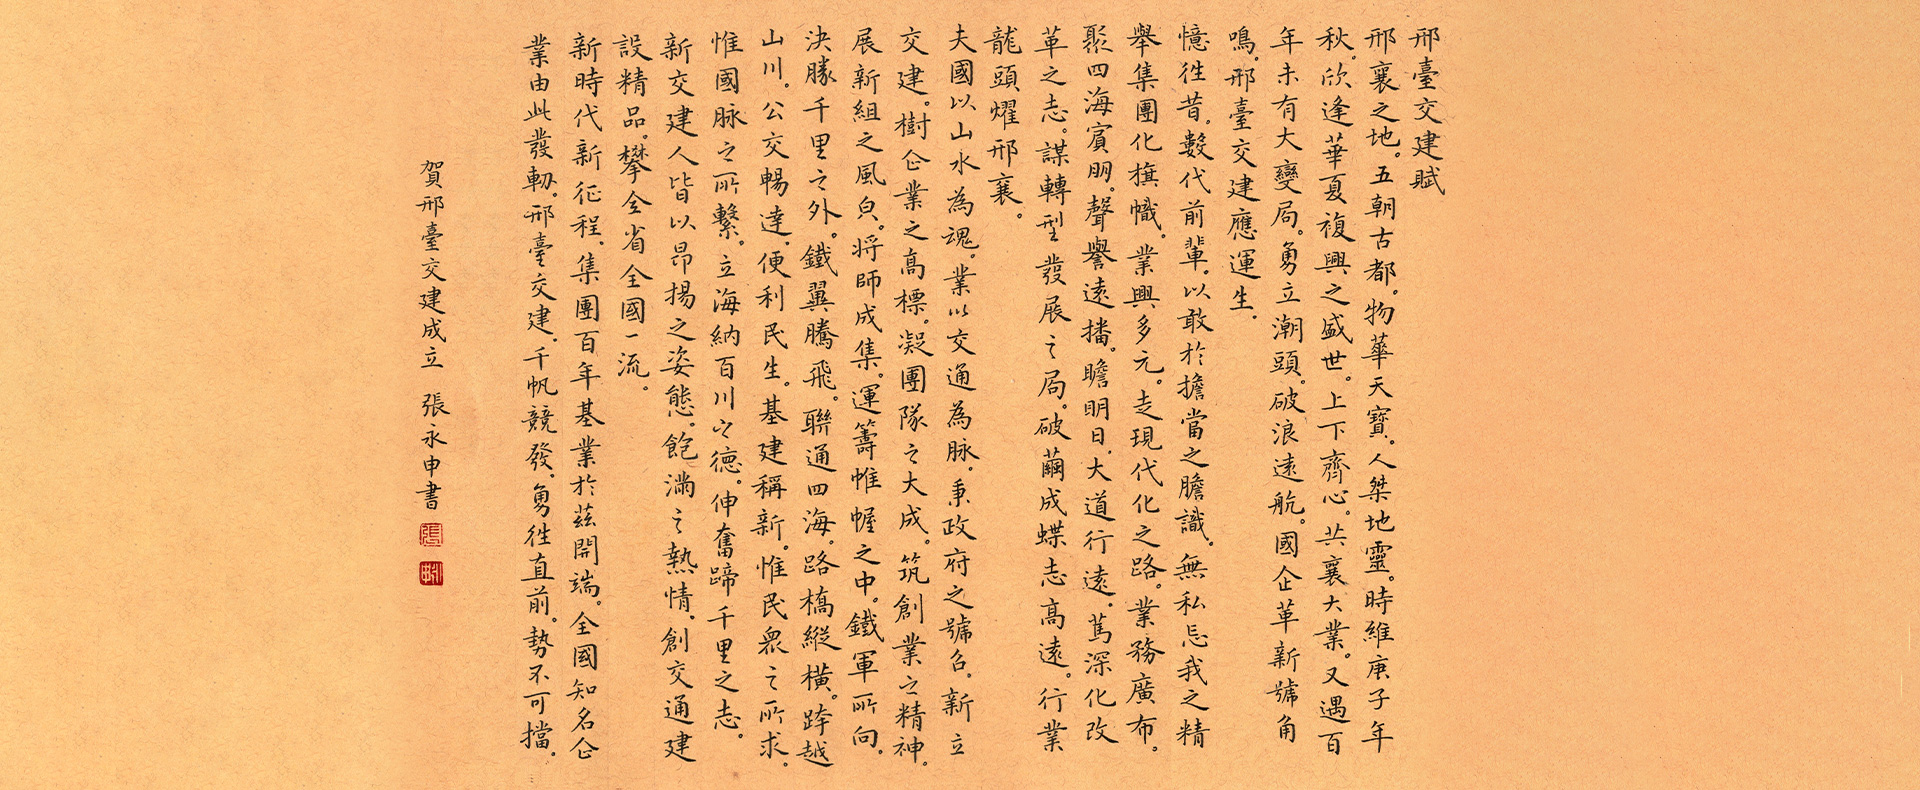 邢臺交建賦
邢襄之地。五朝古都。物華天寶。人桀地靈。時維庚子年
秋。欣逢華夏複興之盛世。上下齊心。共襄大業。又遇百
年未有大變局。勇立潮頭。破浪遠航。國企革新號角
鳴。邢臺交建應運生。
憶往昔。數代前輩。以敢於擔當之膽識。無私忘我之精
舉集團化旗幟。業興多元。走現代化之路。業務廣布。
聚四海賓朋。聲譽遠播。瞻明日。大道行遠。篤深化改
革之志。謀轉型發展之局。破繭成蝶志高遠。行業
龍頭耀邢襄。
夫國以山水為魂。業以交通為脉。秉政府之號召。新立
交建。樹企業之高標。凝團隊之大成。筑創業之精神。
展新組之風皃。将師成集。運籌帷幄之中。鐵軍所向。
決勝千里之外。鐵翼騰飛。聯通四海。路橋縱橫。跨越
山川。公交暢達。便利民生。基建稱新。惟民衆之所求。
惟國脉之所繫。立海納百川之德。伸奮蹄千里之志。
新交建人皆以昂揚之姿態。飽滿之熱情。創交通建
設精品。攀全省全國一流。
新時代新征程。集團百年基業於茲開端。全國知名企
業由此發軔。邢臺交建。千帆競發。勇往直前。勢不可擋。
賀邢臺交建成立 張永申書